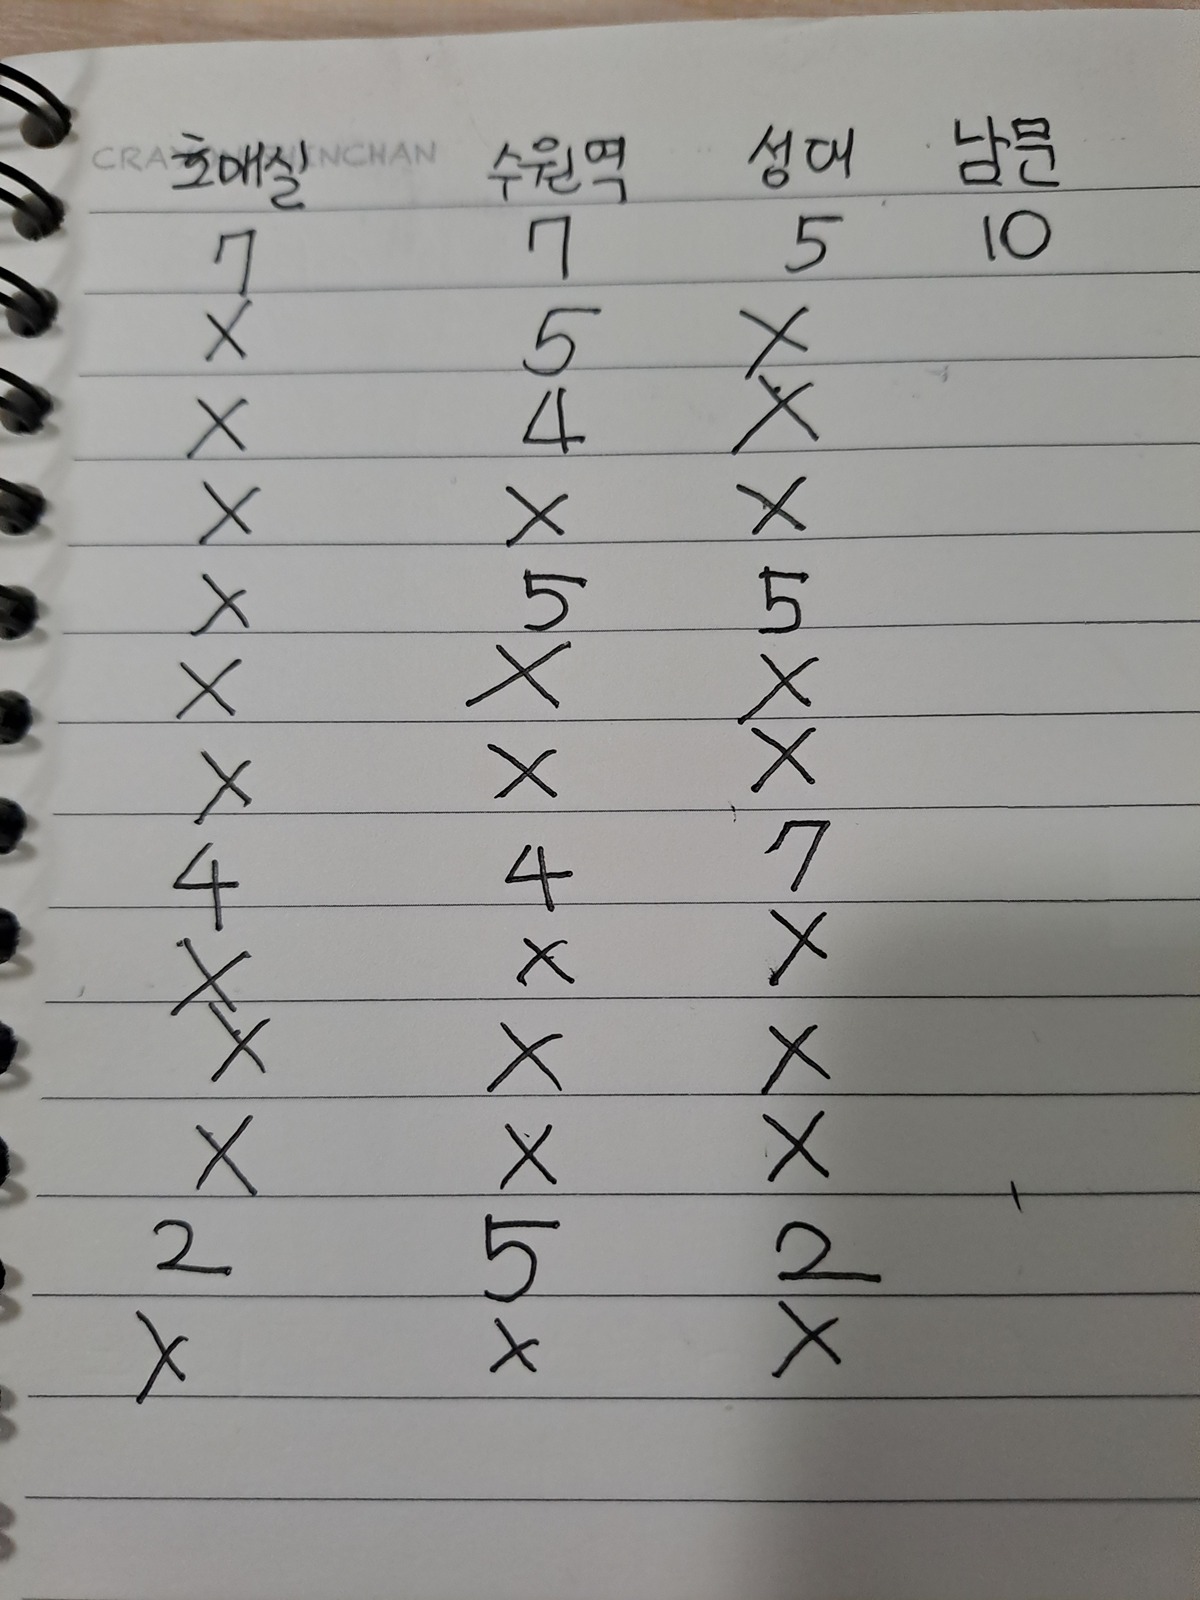 CRAYON SHINCHAN
호매실 수원역 성대 남문
7 7 5 10
X 5 X
X 4 X
X X X
X 5 5
X X X
X X X
4 4 7
X X X
X X X
X X X
2 5 2
X X X